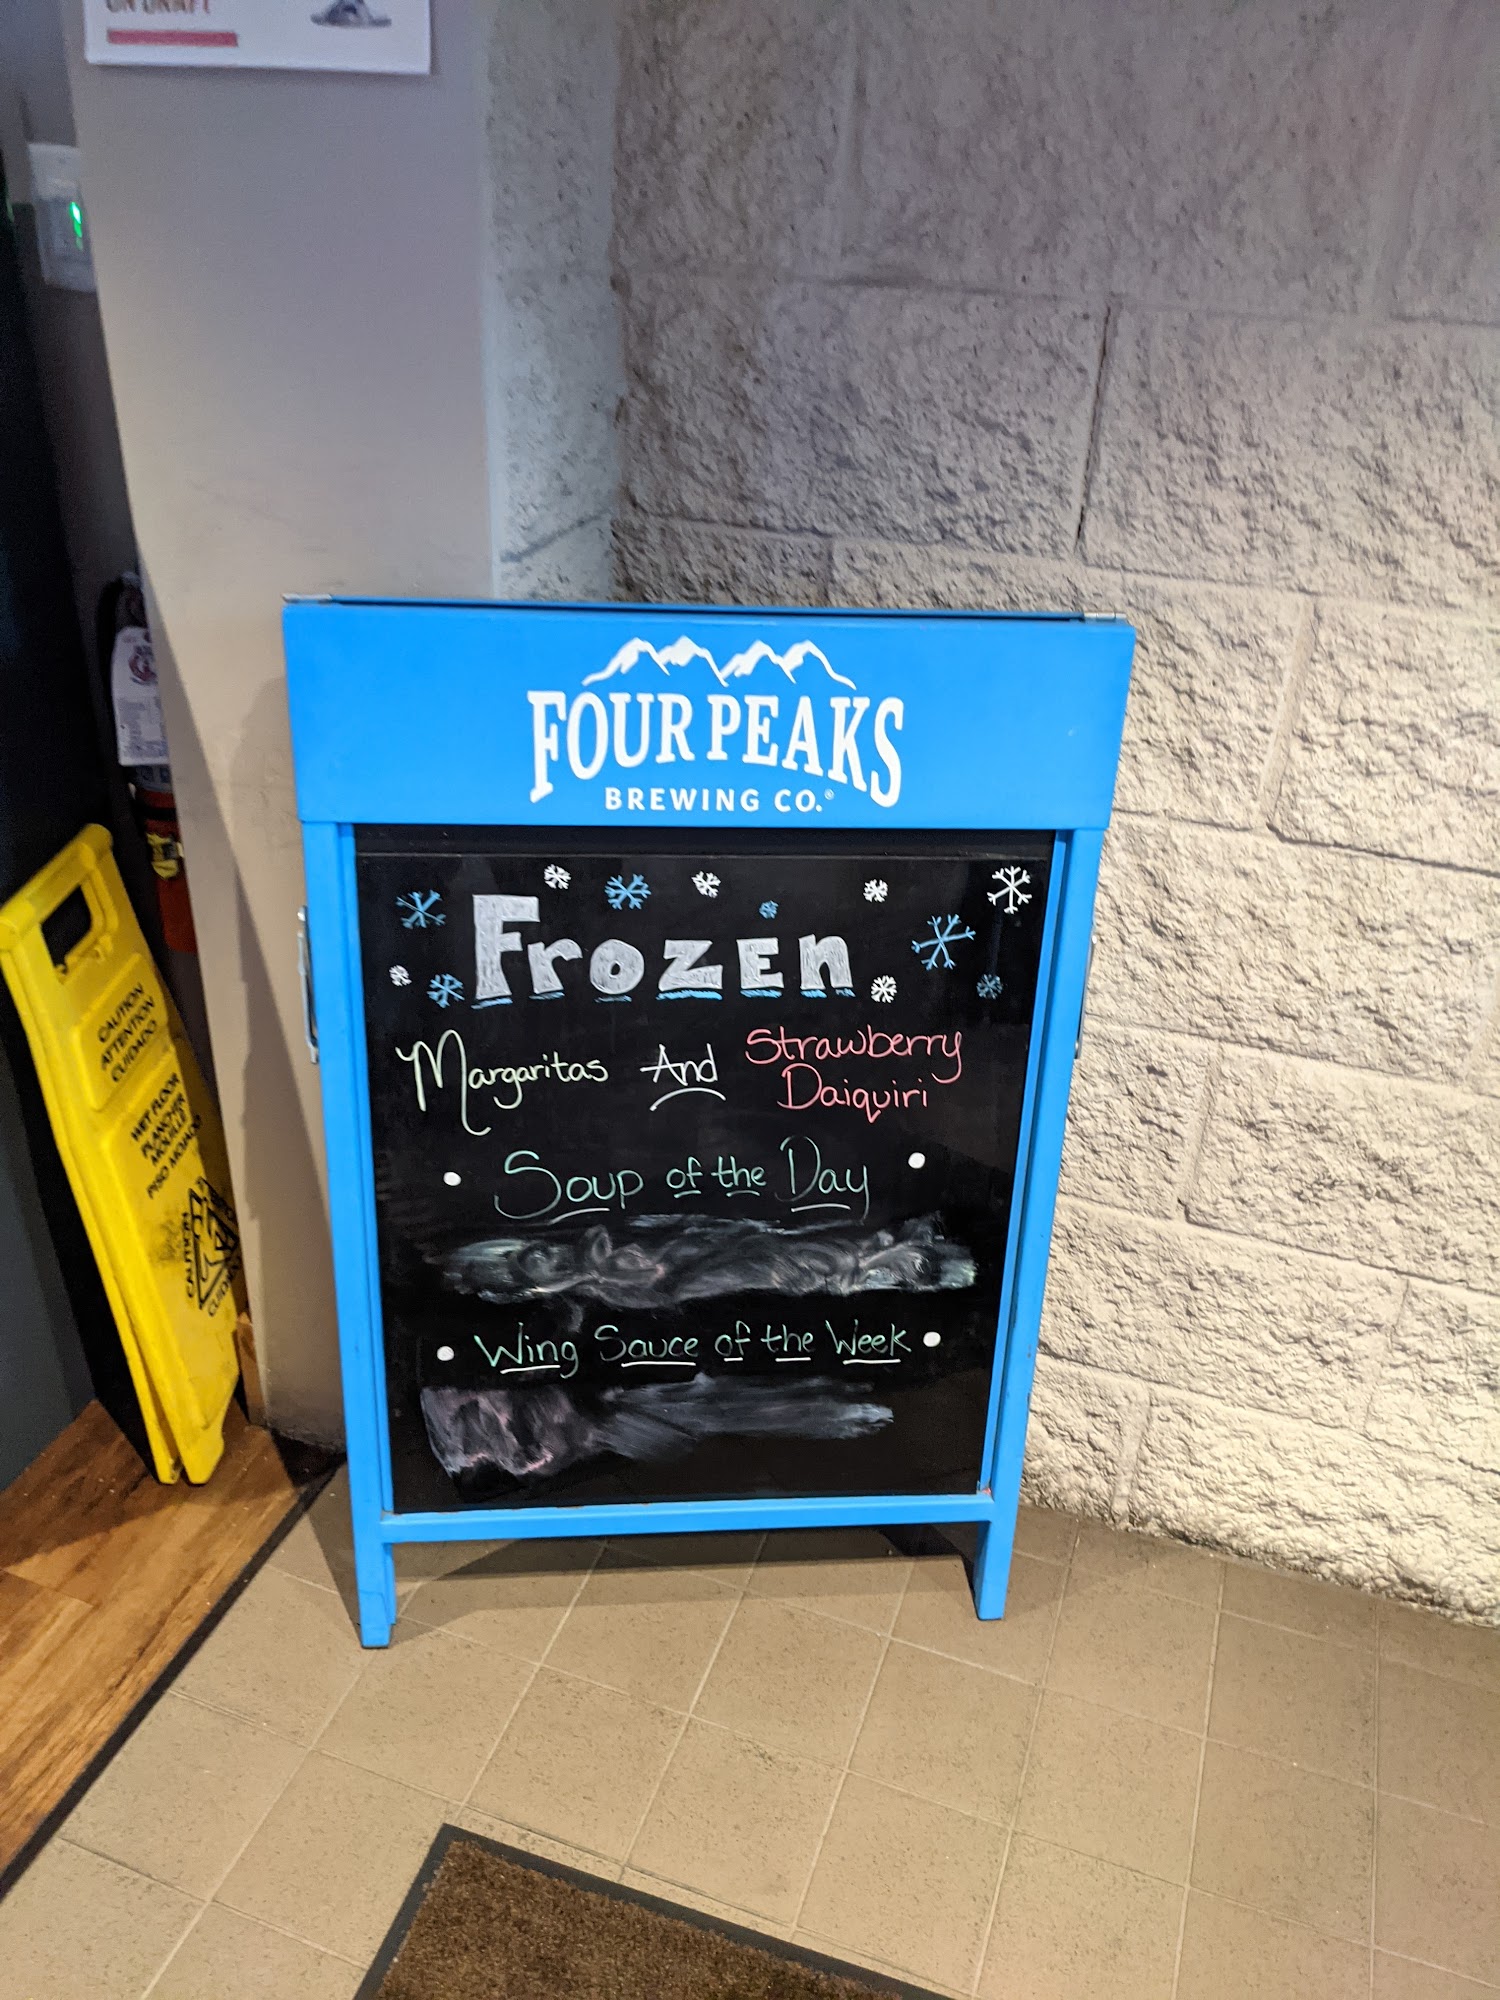 ON DRAFT
FOUR PEAKS
BREWING CO.®
Frozen
Margaritas And Strawberry
Daiquiri
• Soup of the Day •
• Wing Sauce of the Week •
CAUTION
ATTENTION
CUIDADO
WET FLOOR
PLANCHER
MOUILLÉ
PISO MOJADO
CAUTION